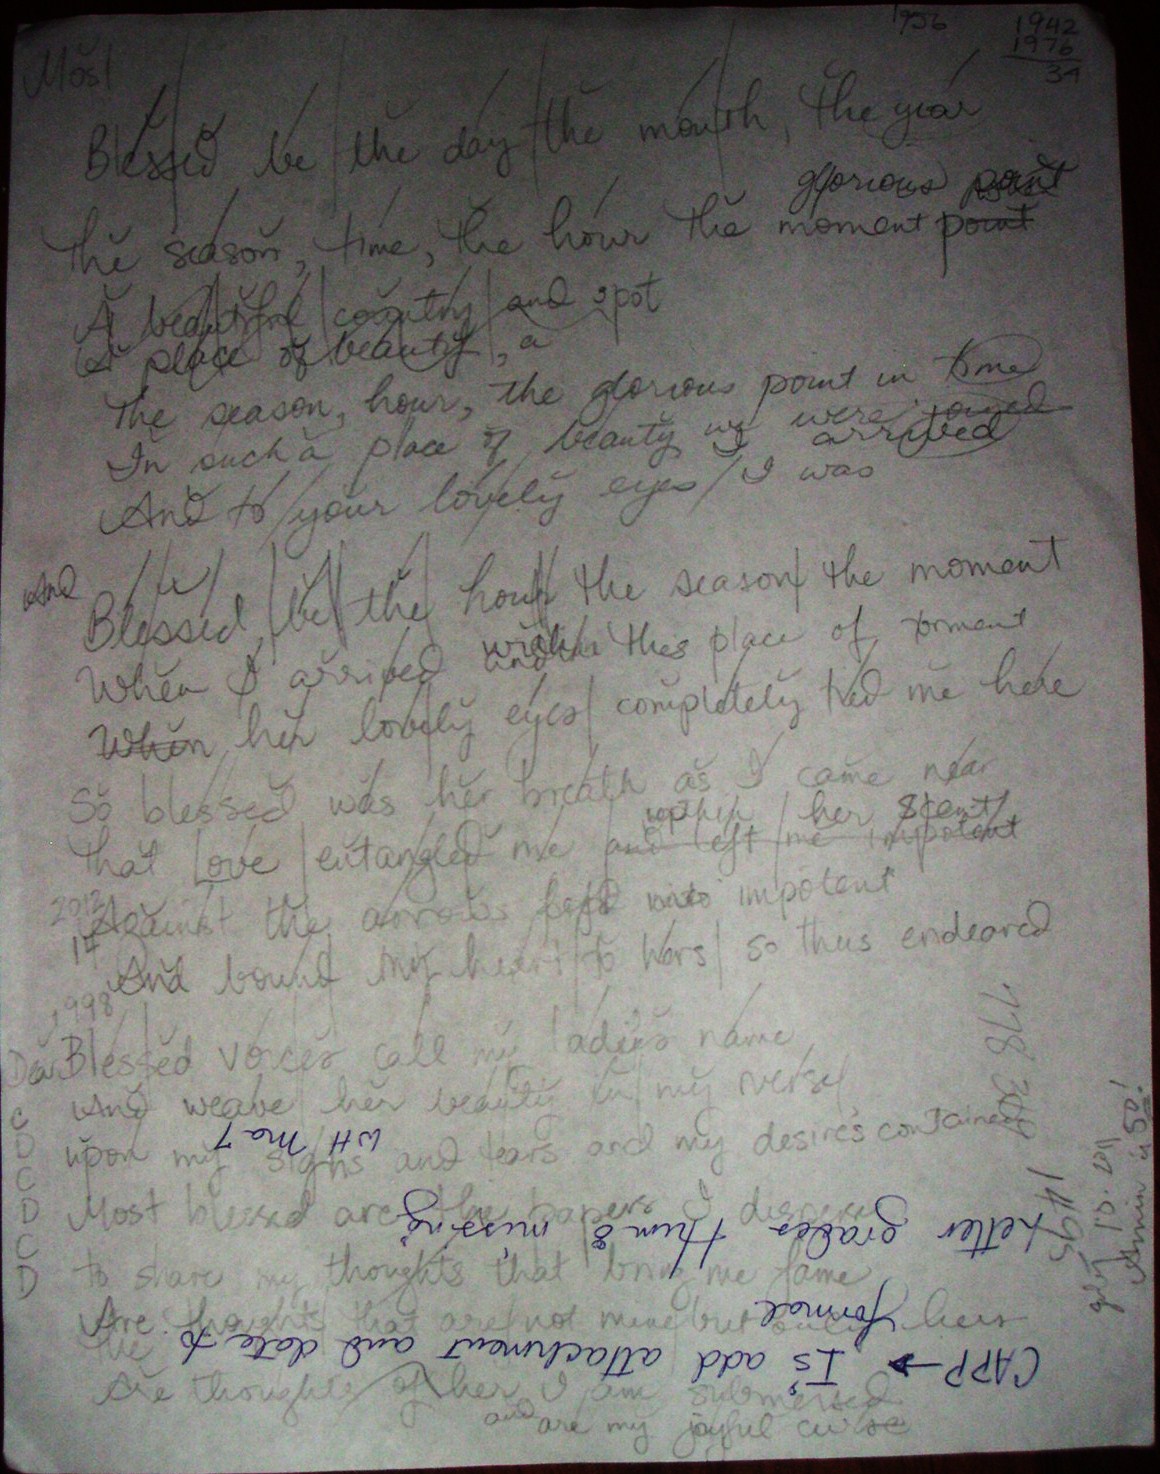 1956
1942
1976
34
Most
Blessed be the day the month, the year
glorious point
The season, time, the hour the moment point
A beautiful country and spot
A place of beauty, a
The season, hour, the glorious point in time
In such a place of beauty we were joined
arrived
And to your lovely eyes I was
And
Blessed be the hour the season the moment
When I arrived within this place of torment
When her lovely eyes completely tied me here
So blessed was her breath as I came near
within her scent
That Love entangled me and left me impotent
2012
Against the arrows impotent
14
And bound my heart to hers so thus endeared
1998
Blessed voices call my ladies name
And weave her beauty in my verse
upon my sighs and tears and my desires contained
C
D
C
D
C
D
Most blessed are the papers I disperse
to share my thoughts that bring me fame
Are thoughts that are not mine but only hers
The
Are thoughts of her I am submersed
and are my joyful curse
CAPP → I's add attachment and date to
formal
Letter grades thun 8 missing
WH Ma 7
1495
Admin is 50!